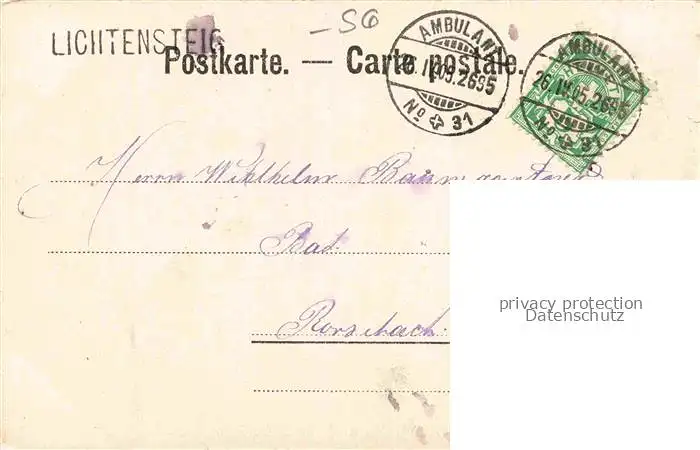 LICHTENSTEIG
– SG
Postkarte. — Carte postale.
AMBULANT
26.IV.05.2695
No 31
AMBULANT
26.IV.05.2695
No 31
Herrn Wihlhelm Baumgartner
Bad
Rorschach
privacy protection
Datenschutz